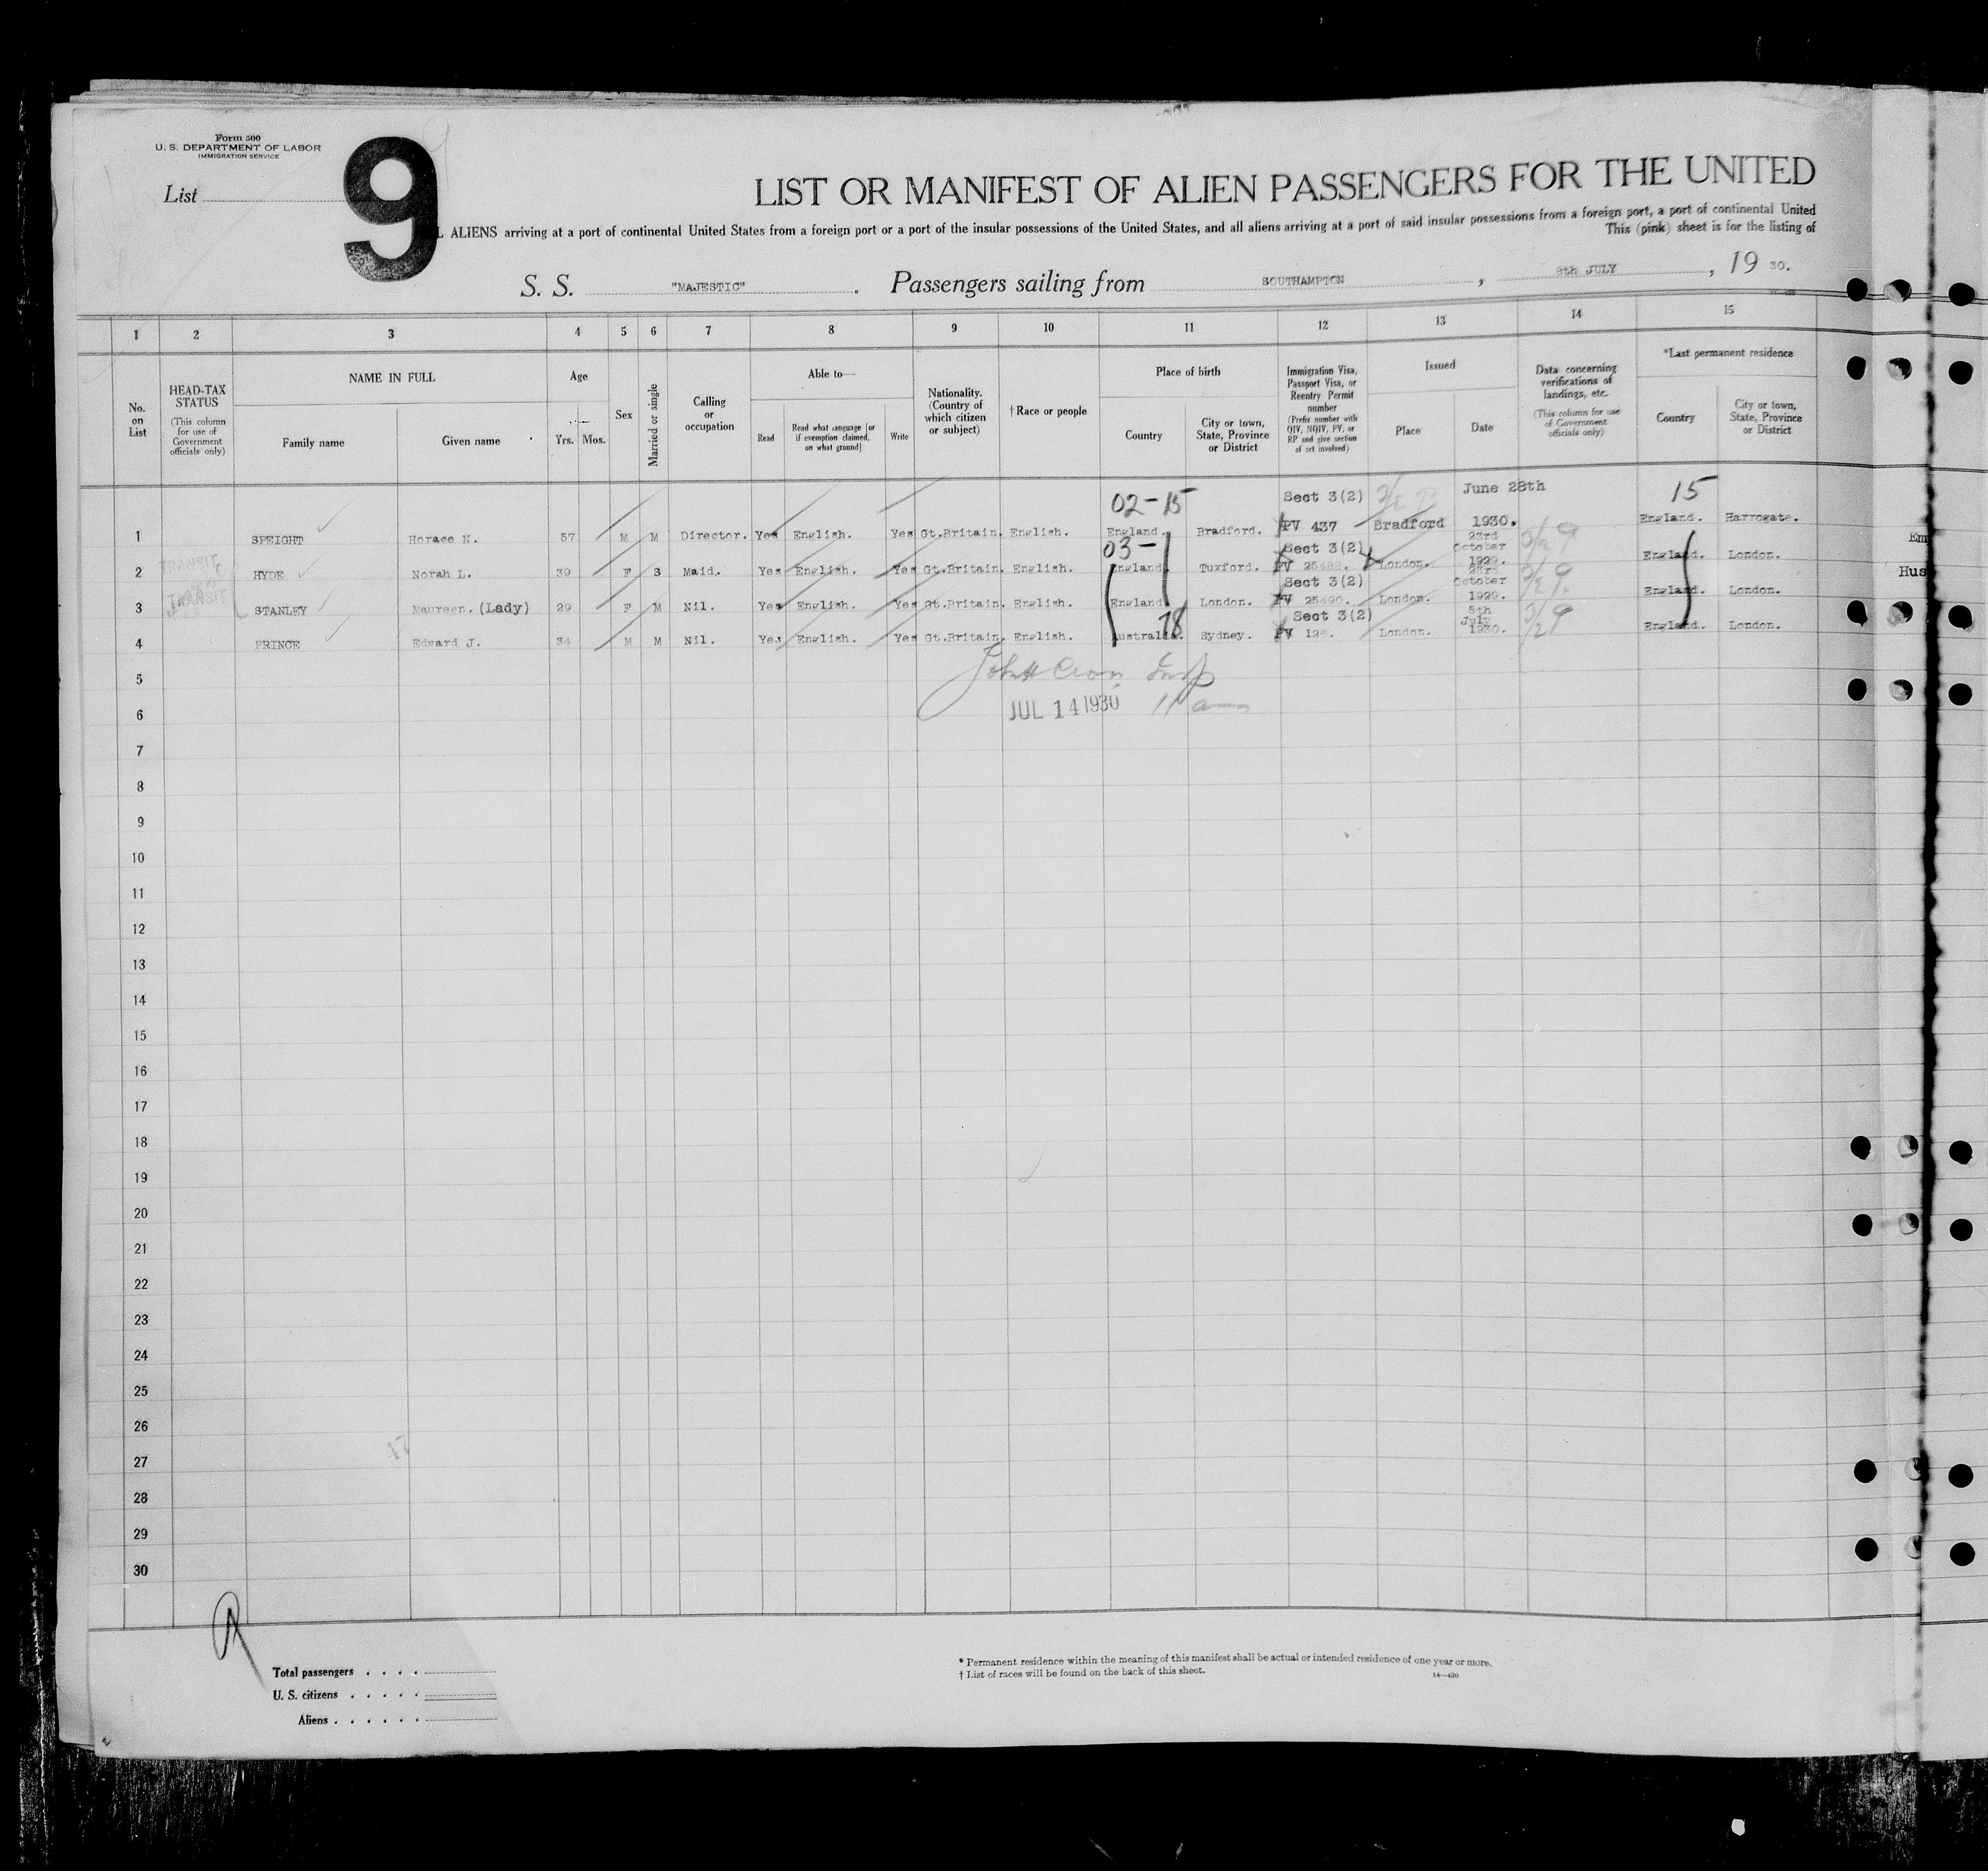 Form 500
U. S. DEPARTMENT OF LABOR
IMMIGRATION SERVICE
List
9
LIST OR MANIFEST OF ALIEN PASSENGERS FOR THE UNITED
L ALIENS arriving at a port of continental United States from a foreign port or a port of the insular possessions of the United States, and all aliens arriving at a port of said insular possessions from a foreign port, a port of continental United
This (pink) sheet is for the listing of
S. S. "MAJESTIC". Passengers sailing from SOUTHAMPTON, 8th JULY, 19 30.
1 2 3 4 5 6 7 8 9 10 11 12 13 14 15
No. on List
HEAD-TAX STATUS
(This column for use of Government officials only)
NAME IN FULL
Family name
Given name
Age
Yrs. Mos.
Sex
Married or single
Calling or occupation
Able to—
Read
Read what language [or if exemption claimed, on what ground]
Write
Nationality. (Country of which citizen or subject)
† Race or people
Place of birth
Country
City or town, State, Province or District
Immigration Visa, Passport Visa, or Reentry Permit number
(Prefix number with QIV, NQIV, PV, or RP and give section of act involved)
Issued
Place
Date
Data concerning verifications of landings, etc.
(This column for use of Government officials only)
*Last permanent residence
Country
City or town, State, Province or District
02-15 Sect 3(2) June 28th 15
1 SPEIGHT Horace N. 57 M M Director. Yes English. Yes Gt.Britain. English. England. Bradford. PV 437 Bradford 1930. England. Harrogate.
Em
03- Sect 3(2) 23rd October
2 TRANSIT HYDE Norah L. 39 F S Maid. Yes English. Yes Gt.Britain. English. England. Tuxford. PV London. 1929. England. London.
Hus
Sect 3(2) 23rd October
3 TRANSIT STANLEY Maureen. (Lady) 29 F M Nil. Yes English. Yes Gt.Britain. English. England London. PV 25490. London. 1929. England. London.
18 Sect 3(2) 5th July
4 PRINCE Edward J. 34 M M Nil. Yes English. Yes Gt.Britain. English. Australia. Sydney. PV London. 1930. England. London.
5
6
JUL 14 1930 11 am
7
8
9
10
11
12
13
14
15
16
17
18
19
20
21
22
23
24
25
26
27
28
29
30
Total passengers . . . .
U. S. citizens . . . . .
Aliens . . . . . .
* Permanent residence within the meaning of this manifest shall be actual or intended residence of one year or more.
† List of races will be found on the back of this sheet.
14—430